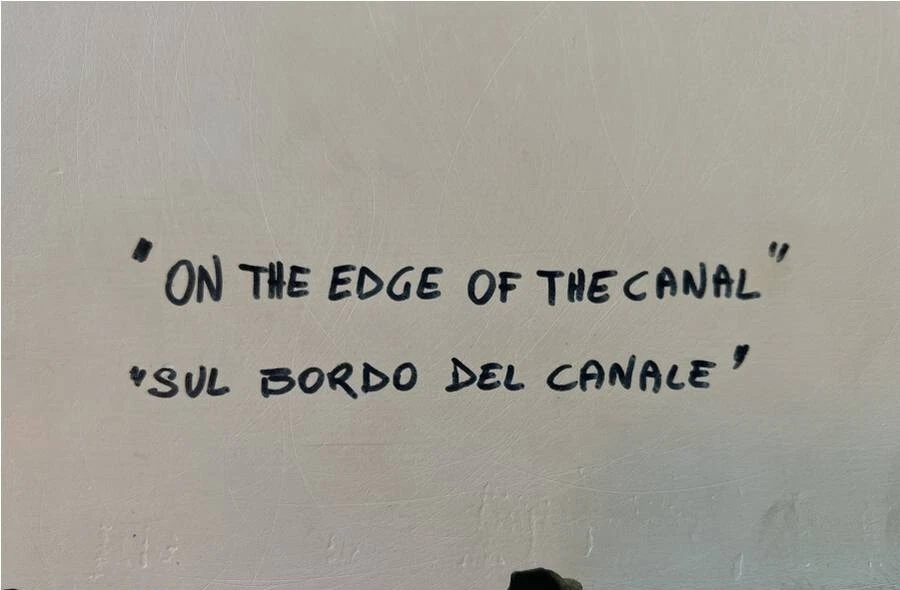 "ON THE EDGE OF THE CANAL"
"SUL BORDO DEL CANALE"